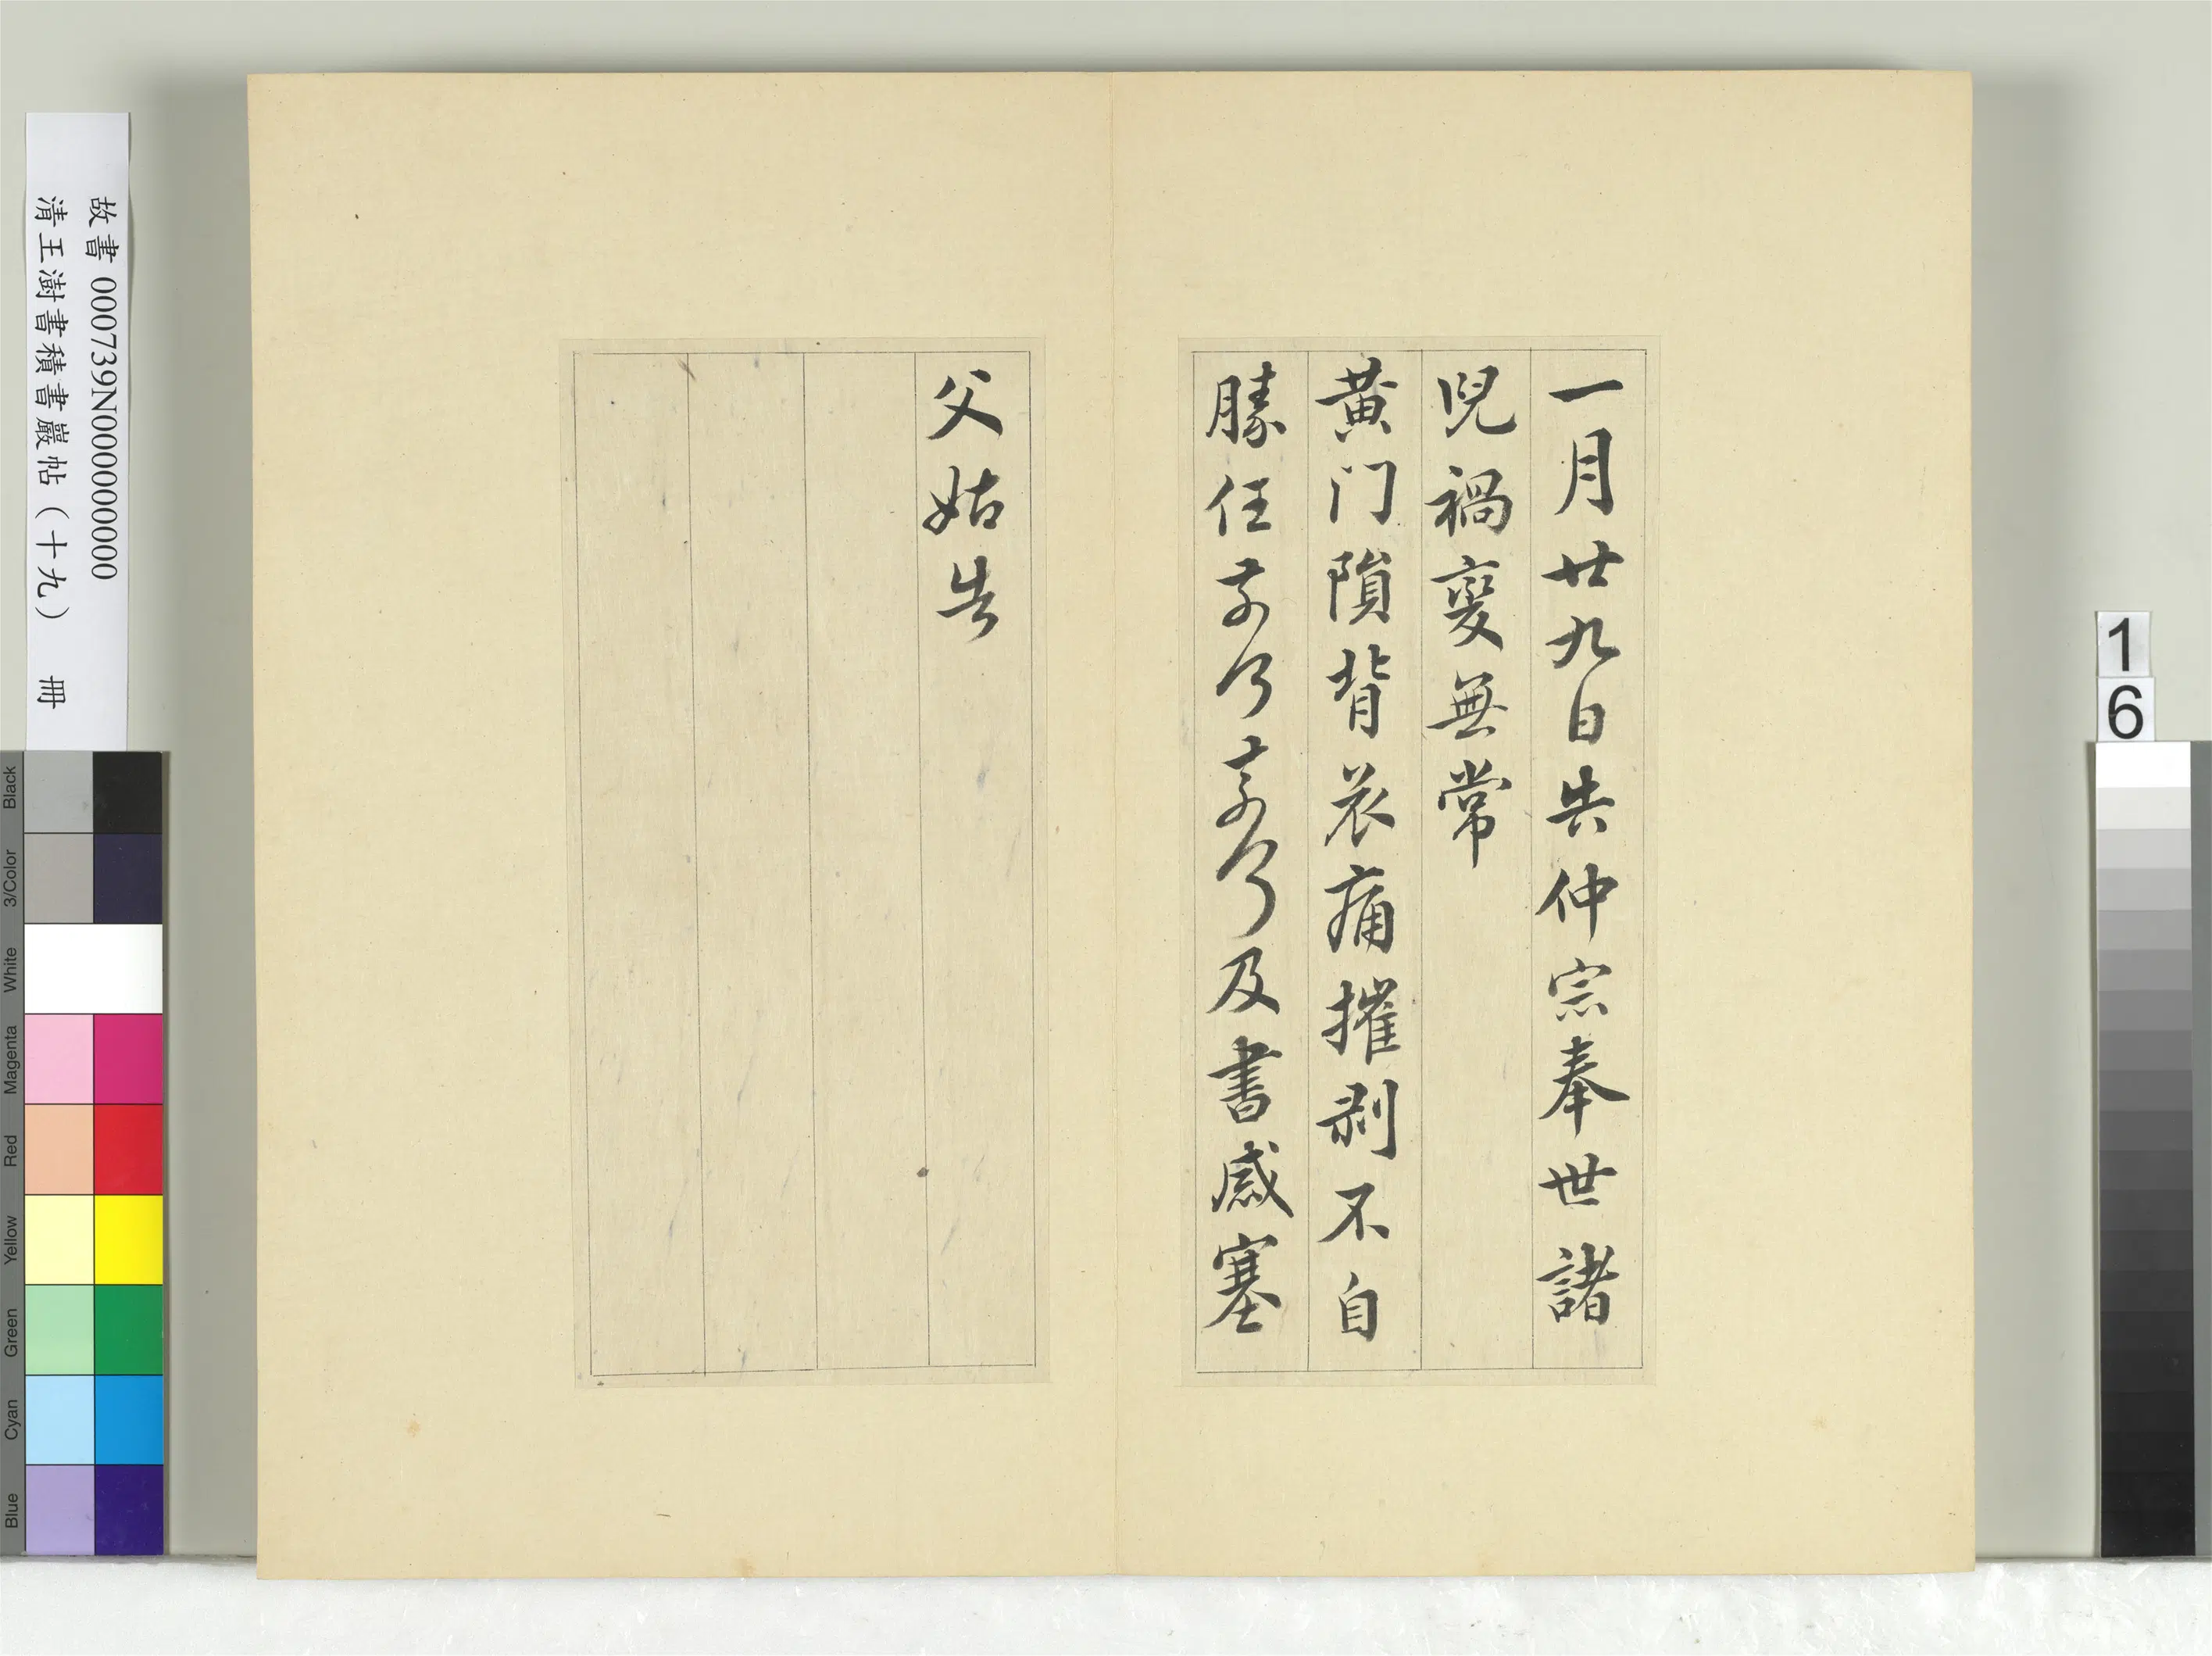 一月廿九日告仲宗奉世諸
兒禍變無常
黄門隕背哀痛摧剥不自
勝任奈何奈何及書感塞
父姑告
故書 000739N000000000
清王澍書積書巖帖（十九） 冊
Black
3/Color
White
Magenta
Red
Yellow
Green
Cyan
Blue
1
6